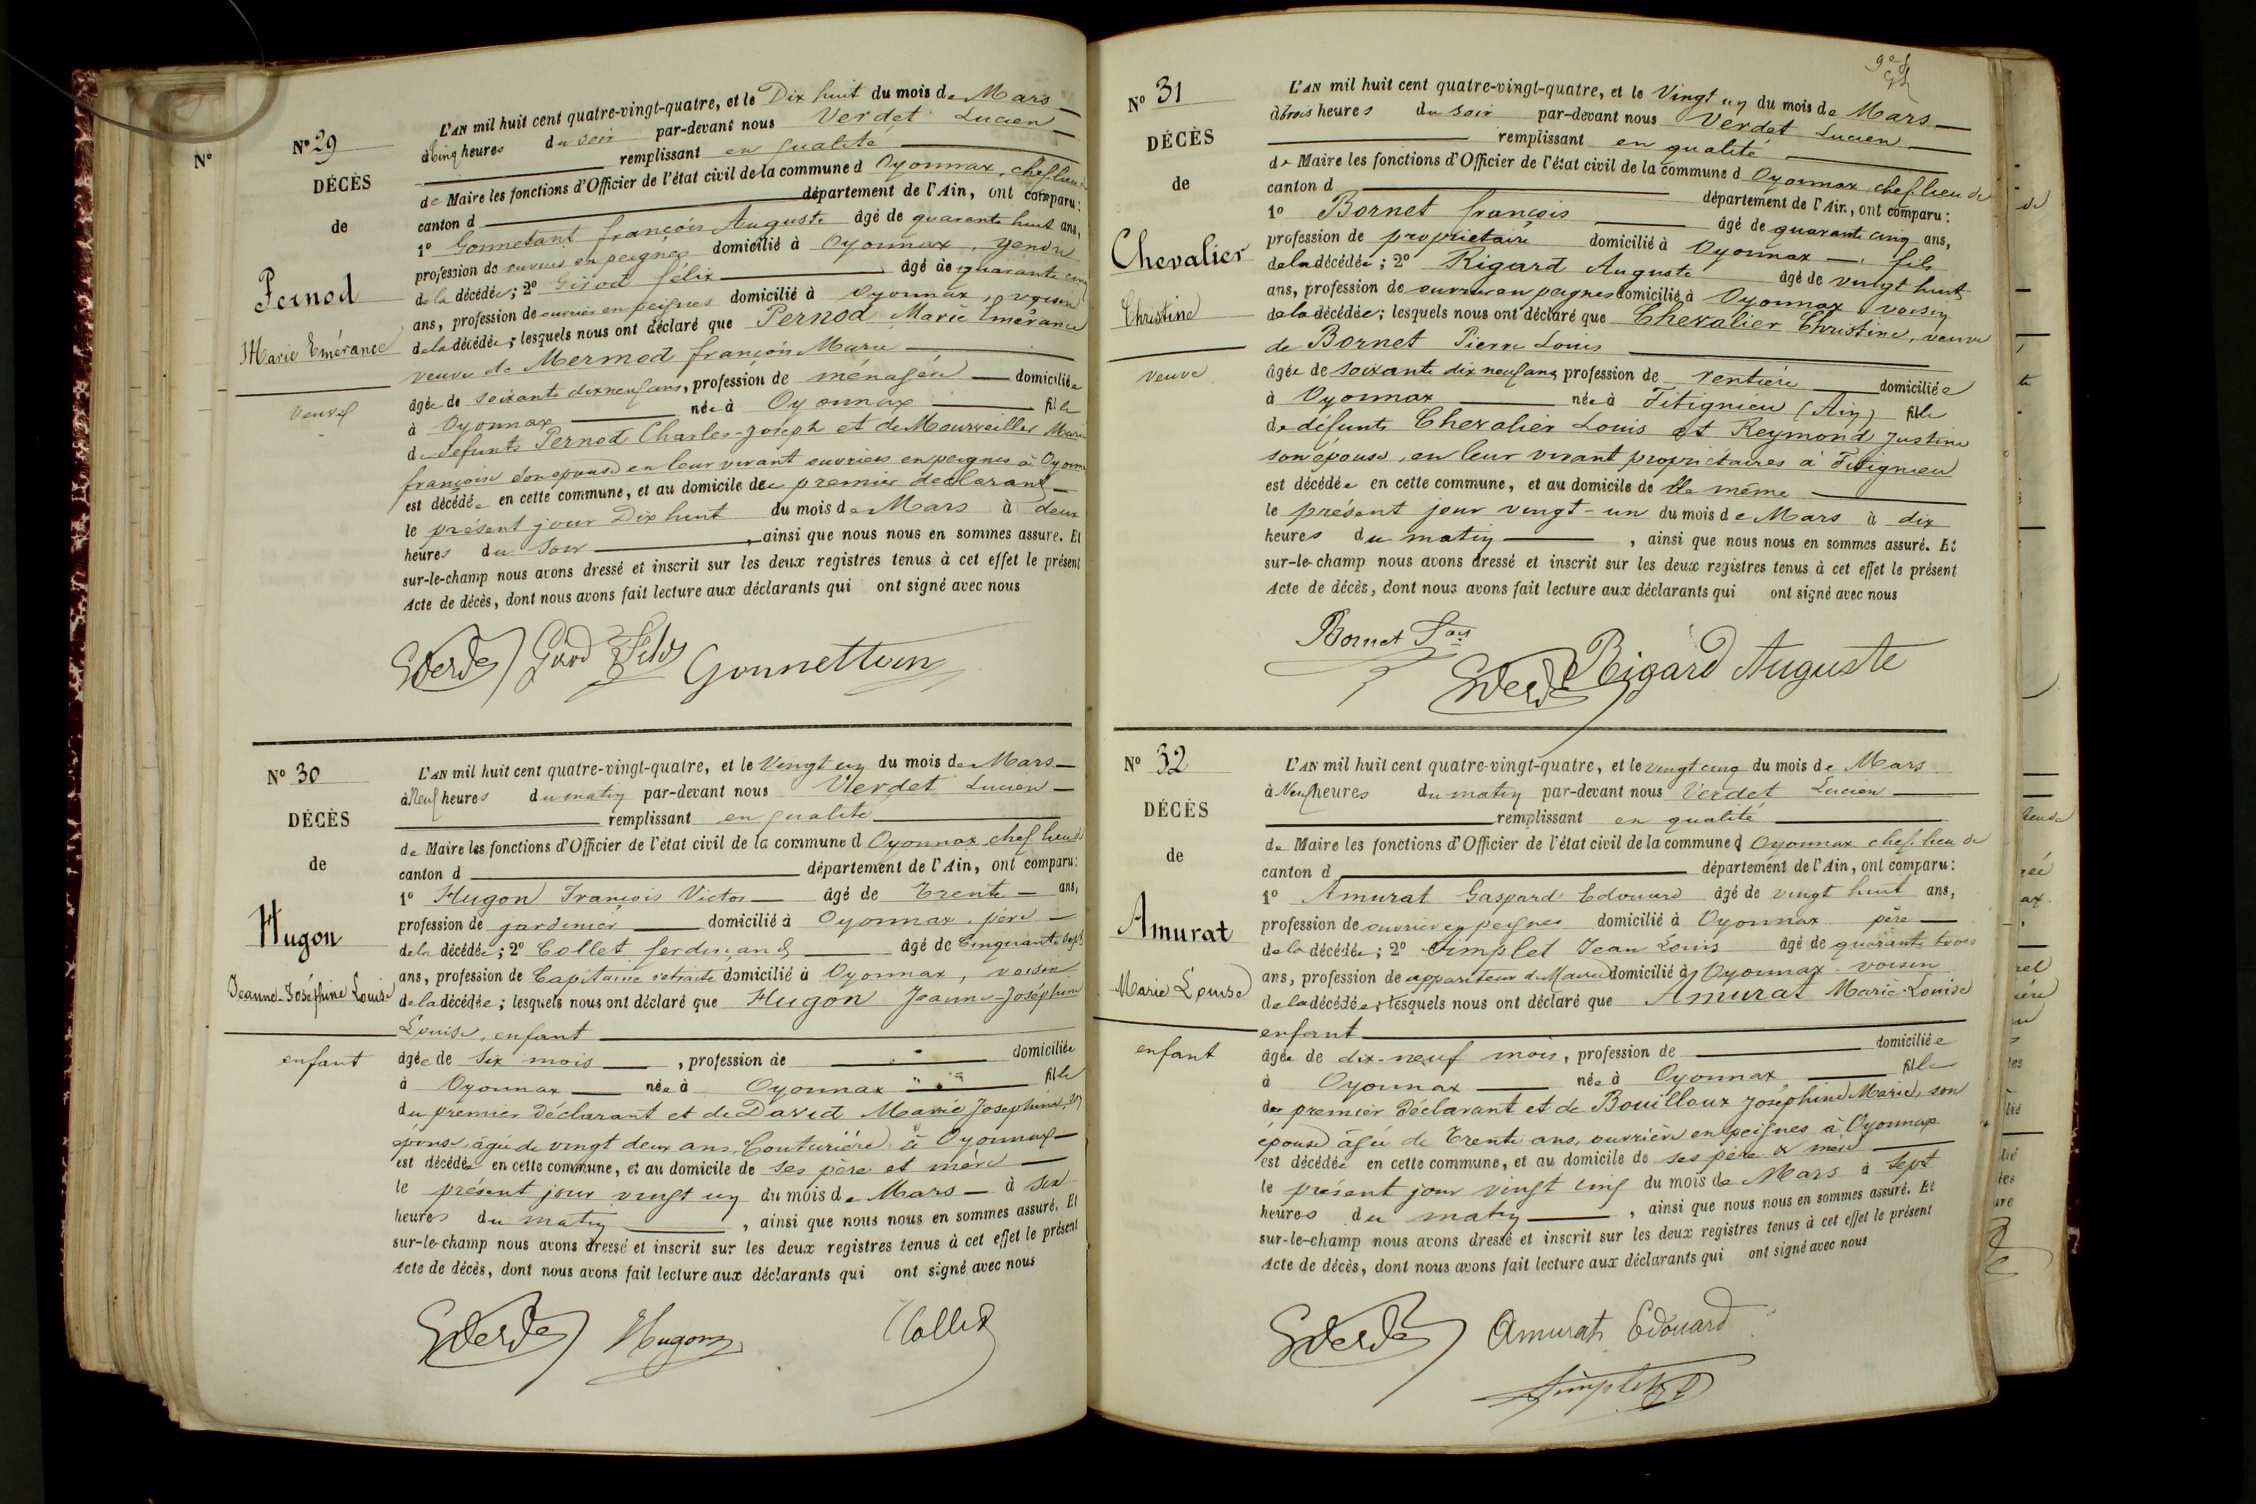 N°
N° 29
DÉCÈS
de
Pernod
Marie Emérance
veuve
L'AN mil huit cent quatre-vingt-quatre, et le Dix huit du mois de Mars
à cinq heures du soir par-devant nous Verdet Lucien
remplissant en qualité
de Maire les fonctions d'Officier de l'état civil de la commune d Oyonnax, chef lieu de
canton d département de l'Ain, ont comparu:
1° Gonnetant françois Auguste âgé de quarante huit ans,
profession de ouvrier en peignes domicilié à Oyonnax, gendre
de la décédée; 2° Girod félix âgé de quarante cinq
ans, profession de ouvrier en peignes domicilié à Oyonnax, voisin
de la décédée; lesquels nous ont déclaré que Pernod Marie Emérance
veuve de Mermod françois Marie
âgée de soixante dix neuf ans, profession de ménagère domiciliée
à Oyonnax née à Oyonnax fille
de défunts Pernod Charles-Joseph et de Mourveiller Marie
françoise son épouse en leur vivant ouvriers en peignes à Oyonnax
est décédée en cette commune, et au domicile de premier déclarant
le présent jour Dix huit du mois de Mars à deux
heures du soir, ainsi que nous nous en sommes assuré. Et
sur-le-champ nous avons dressé et inscrit sur les deux registres tenus à cet effet le présent
Acte de décès, dont nous avons fait lecture aux déclarants qui ont signé avec nous
Verdet Girod Félix Gonnettan
N° 30
DÉCÈS
de
Hugon
Jeanne-Joséphine Louise
enfant
L'AN mil huit cent quatre-vingt-quatre, et le Vingt un du mois de Mars
à Neuf heures du matin par-devant nous Verdet Lucien
remplissant en qualité
de Maire les fonctions d'Officier de l'état civil de la commune d Oyonnax chef lieu de
canton d département de l'Ain, ont comparu:
1° Hugon François Victor âgé de Trente ans,
profession de jardinier domicilié à Oyonnax, père
de la décédée; 2° Collet ferdinand âgé de Cinquante sept
ans, profession de Capitaine retraité domicilié à Oyonnax, voisin
de la décédée; lesquels nous ont déclaré que Hugon Jeanne-Joséphine
Louise, enfant
âgée de six mois, profession de domiciliée
à Oyonnax née à Oyonnax fille
du premier déclarant et de David Marie Josephine, son
épouse, âgée de vingt deux ans, Couturière à Oyonnax
est décédée en cette commune, et au domicile de ses père et mère
le présent jour vingt un du mois de Mars à six
heures du matin, ainsi que nous nous en sommes assuré. Et
sur-le-champ nous avons dressé et inscrit sur les deux registres tenus à cet effet le présent
Acte de décès, dont nous avons fait lecture aux déclarants qui ont signé avec nous
Verdet Hugon Collet
N° 31
DÉCÈS
de
Chevalier
Christine
veuve
L'AN mil huit cent quatre-vingt-quatre, et le Vingt un du mois de Mars
à trois heures du soir par-devant nous Verdet Lucien
remplissant en qualité
de Maire les fonctions d'Officier de l'état civil de la commune d Oyonnax chef lieu de
canton d département de l'Ain, ont comparu:
1° Bornet françois âgé de quarante cinq ans,
profession de propriétaire domicilié à Oyonnax, fils
de la décédée; 2° Rigard Auguste âgé de vingt huit
ans, profession de ouvrier en peignes domicilié à Oyonnax voisin
de la décédée; lesquels nous ont déclaré que Chevalier Christine, veuve
de Bornet Pierre Louis
âgée de soixante dix neuf ans profession de rentière domiciliée
à Oyonnax née à Fitignieu (Ain) fille
de défunts Chevalier Louis et Reymond Justine
son épouse, en leur vivant propriétaires à Fitignieu
est décédée en cette commune, et au domicile de elle même
le présent jour vingt-un du mois de Mars à dix
heures du matin, ainsi que nous nous en sommes assuré. Et
sur-le-champ nous avons dressé et inscrit sur les deux registres tenus à cet effet le présent
Acte de décès, dont nous avons fait lecture aux déclarants qui ont signé avec nous
Bornet fois Verdet Rigard Auguste
N° 32
DÉCÈS
de
Amurat
Marie Louise
enfant
L'AN mil huit cent quatre-vingt-quatre, et le vingt cinq du mois de Mars
à Neuf heures du matin par-devant nous Verdet Lucien
remplissant en qualité
de Maire les fonctions d'Officier de l'état civil de la commune d Oyonnax chef. lieu de
canton d département de l'Ain, ont comparu:
1° Amurat Gaspard Edouard âgé de vingt huit ans,
profession de ouvrier en peignes domicilié à Oyonnax père
de la décédée; 2° Simplet Jean Louis âgé de quarante trois
ans, profession de appariteur de Mairie domicilié à Oyonnax voisin
de la décédée; lesquels nous ont déclaré que Amurat Marie-Louise
enfant
âgée de dix-neuf mois, profession de domiciliée
à Oyonnax née à Oyonnax, fille
du premier déclarant et de Bouilloux Joséphine Marie, son
épouse âgée de Trente ans, ouvrière en peignes à Oyonnax
est décédée en cette commune, et au domicile de ses père et mère
le présent jour vingt cinq du mois de Mars à sept
heures du matin, ainsi que nous nous en sommes assuré. Et
sur-le-champ nous avons dressé et inscrit sur les deux registres tenus à cet effet le présent
Acte de décès, dont nous avons fait lecture aux déclarants qui ont signé avec nous
Verdet Amurat Edouard
Simplet